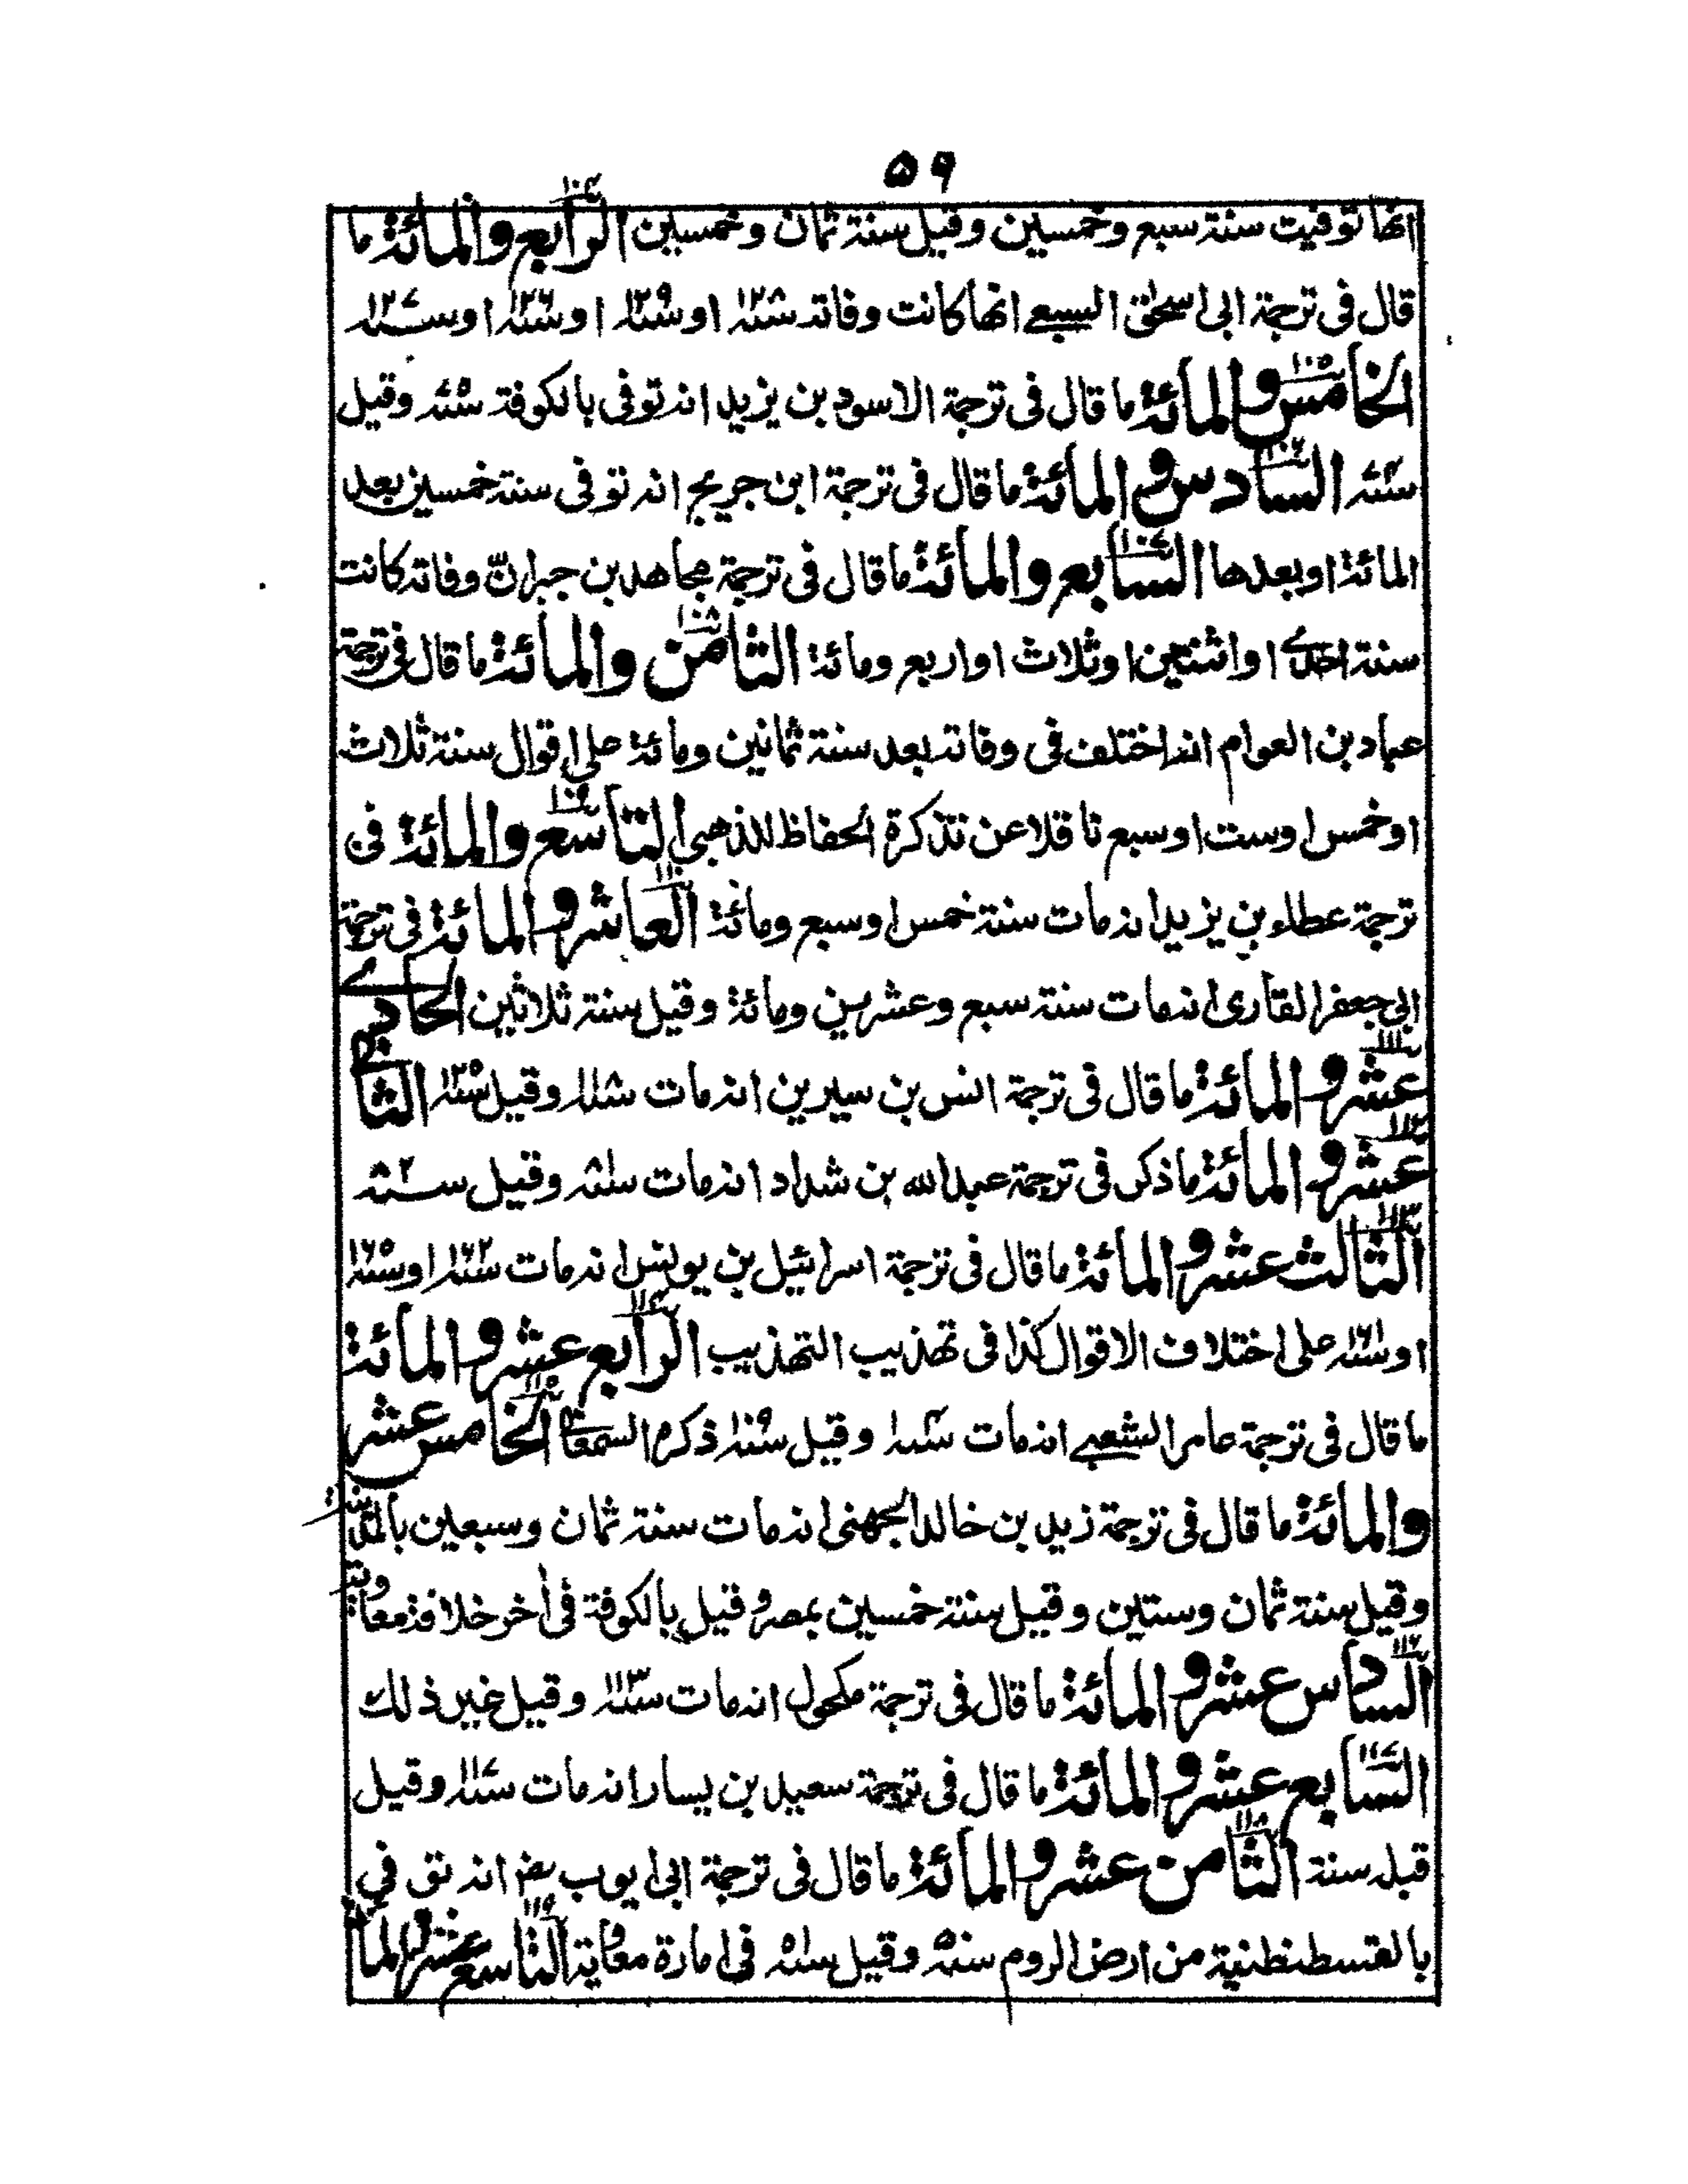 ٥٩
انها توفيت سنة سبع وخمسين وقيل سنة ثمان وخمسين الرابع والمائة ما
قال فى ترجمة ابى اسحٰق السبيعے انها كانت وفاته او او او
الخامس والمائة ما قال فى ترجمة الاسود بن يزيد انه توفى بالكوفة وقيل
السادس والمائة ما قال فى ترجمة ابن جريج انه توفى سنة خمسين بعد
المائة او بعدها السابع والمائة ما قال فى ترجمة مجاهد بن جبر انّ وفاته كانت
سنة احدے او اثنتين او ثلاث او اربع ومائة الثامن والمائة ما قال فى ترجمة
عباد بن العوام انه اختلف فى وفاته بعد سنة ثمانين ومائة على اقوال سنة ثلاث
او خمس او ست او سبع ناقلا عن تذكرة الحفاظ للذهبى التاسع والمائة فى
ترجمة عطاء بن يزيد انه مات سنة خمس او سبع ومائة العاشر والمائة فى ترجمة
ابى جعفر القارى انه مات سنة سبع وعشرين ومائة وقيل سنة ثلاثين الحادے
عشر والمائة ما قال فى ترجمة انس بن سيرين انه مات وقيل الثانى
عشر والمائة ما ذكر فى ترجمة عبد الله بن شداد انه مات وقيل
الثالث عشر والمائة ما قال فى ترجمة اسرائيل بن يونس انه مات او
او على اختلاف الاقوال كذا فى تهذيب التهذيب الرابع عشر والمائة
ما قال فى ترجمة عامر الشعبے انه مات وقيل ذكره السمعانى الخامس عشر
والمائة ما قال فى ترجمة زيد بن خالد الجهنى انه مات سنة ثمان وسبعين بالمدينة
وقيل سنة ثمان وستين وقيل سنة خمسين بمصر وقيل بالكوفة فى اٰخر خلافة معاوية
السادس عشر والمائة ما قال فى ترجمة مكحول انه مات وقيل غير ذلك
السابع عشر والمائة ما قال فى ترجمة سعيد بن يسار انه مات وقيل
قبله سنة الثامن عشر والمائة ما قال فى ترجمة ابى ايوب انه توفي
بالقسطنطنية من ارض الروم وقيل فى امارة معاوية التاسع عشر والمائة